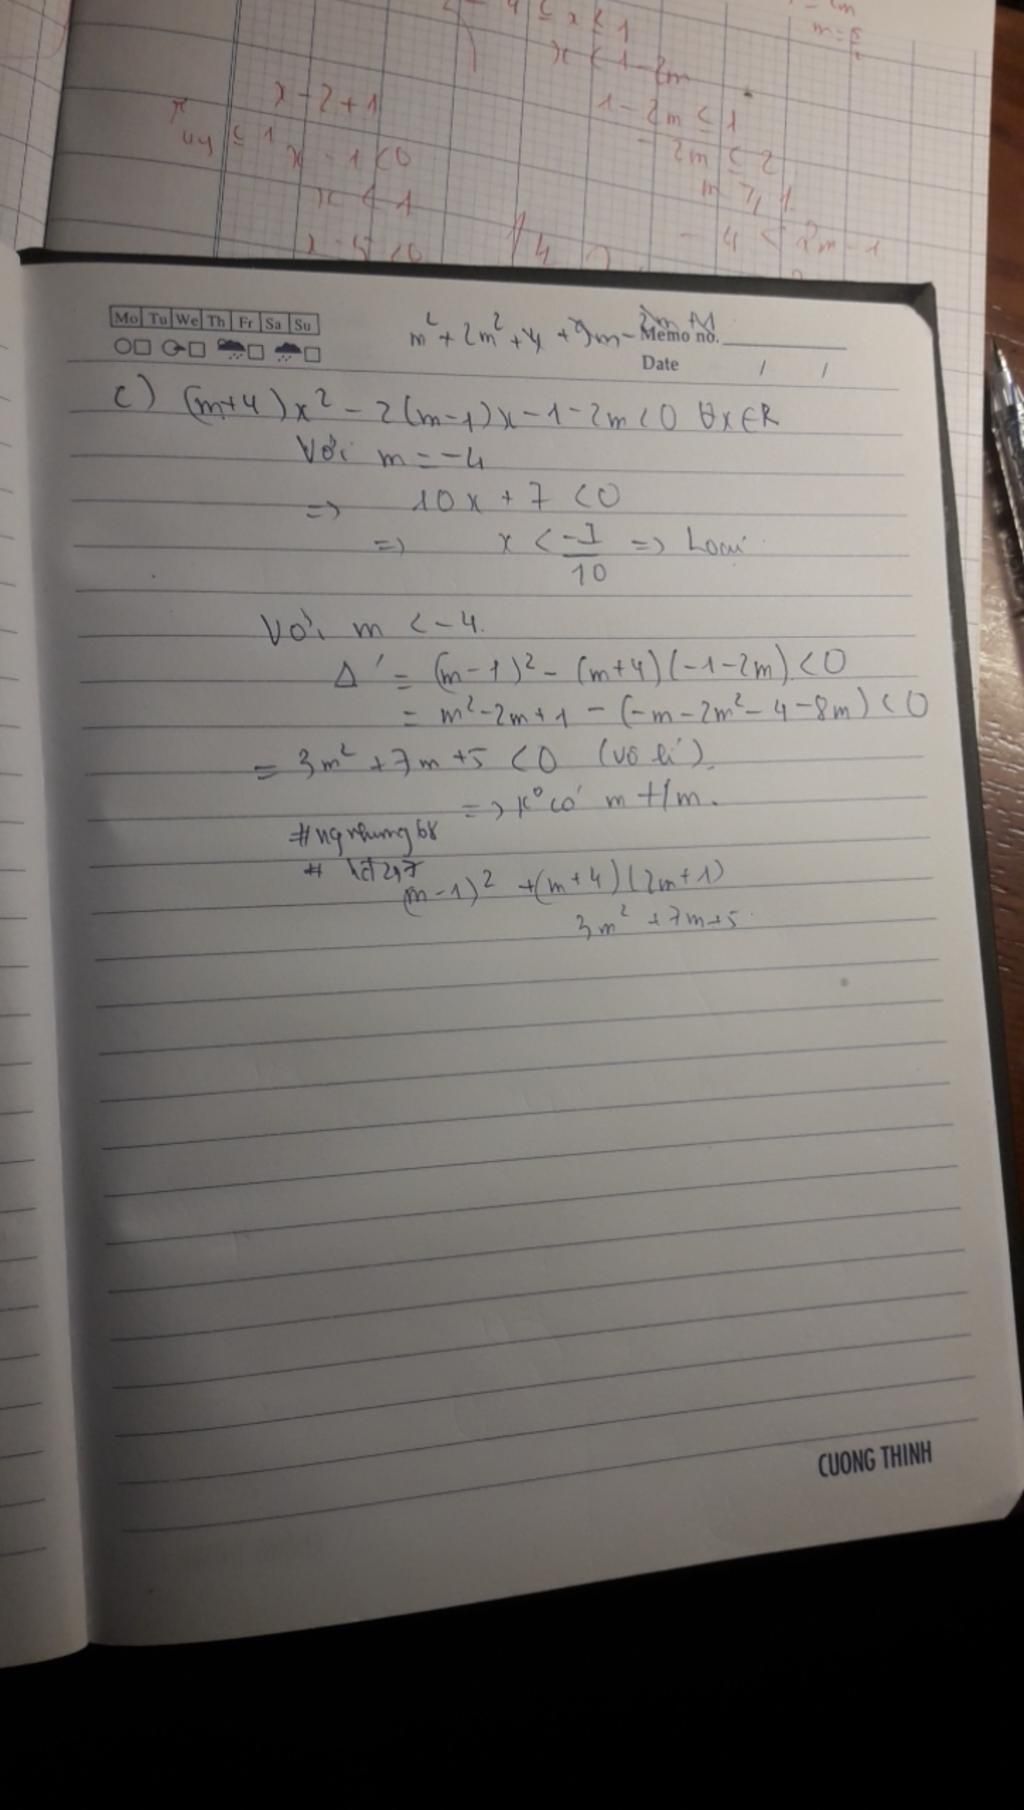 4 ≤ x < 1
x < 1 - 2m
x - 2 + 1
1 - 2m ≤ 1
≤ 1
x - 1 < 0
- 2m ≤ 2
x < 1
- 4 < 2m - 1
x - 5 < 0
Mo Tu We Th Fr Sa Su
m² + 2m² + 4 + 9m - 2m + 1
Memo no.
Date / /
c) (m+4)x² - 2(m-1)x - 1 - 2m < 0 ∀x∈R
Với m = -4
=> 10x + 7 < 0
=> x < -7/10 => Loại
Với m < -4.
Δ' = (m-1)² - (m+4)(-1-2m) < 0
= m² - 2m + 1 - (-m - 2m² - 4 - 8m) < 0
= 3m² + 7m + 5 < 0 (vô lí)
=> k° có m t/m.
#ngnhung68
(m-1)² + (m+4)(2m+1)
3m² + 7m+5
CUONG THINH